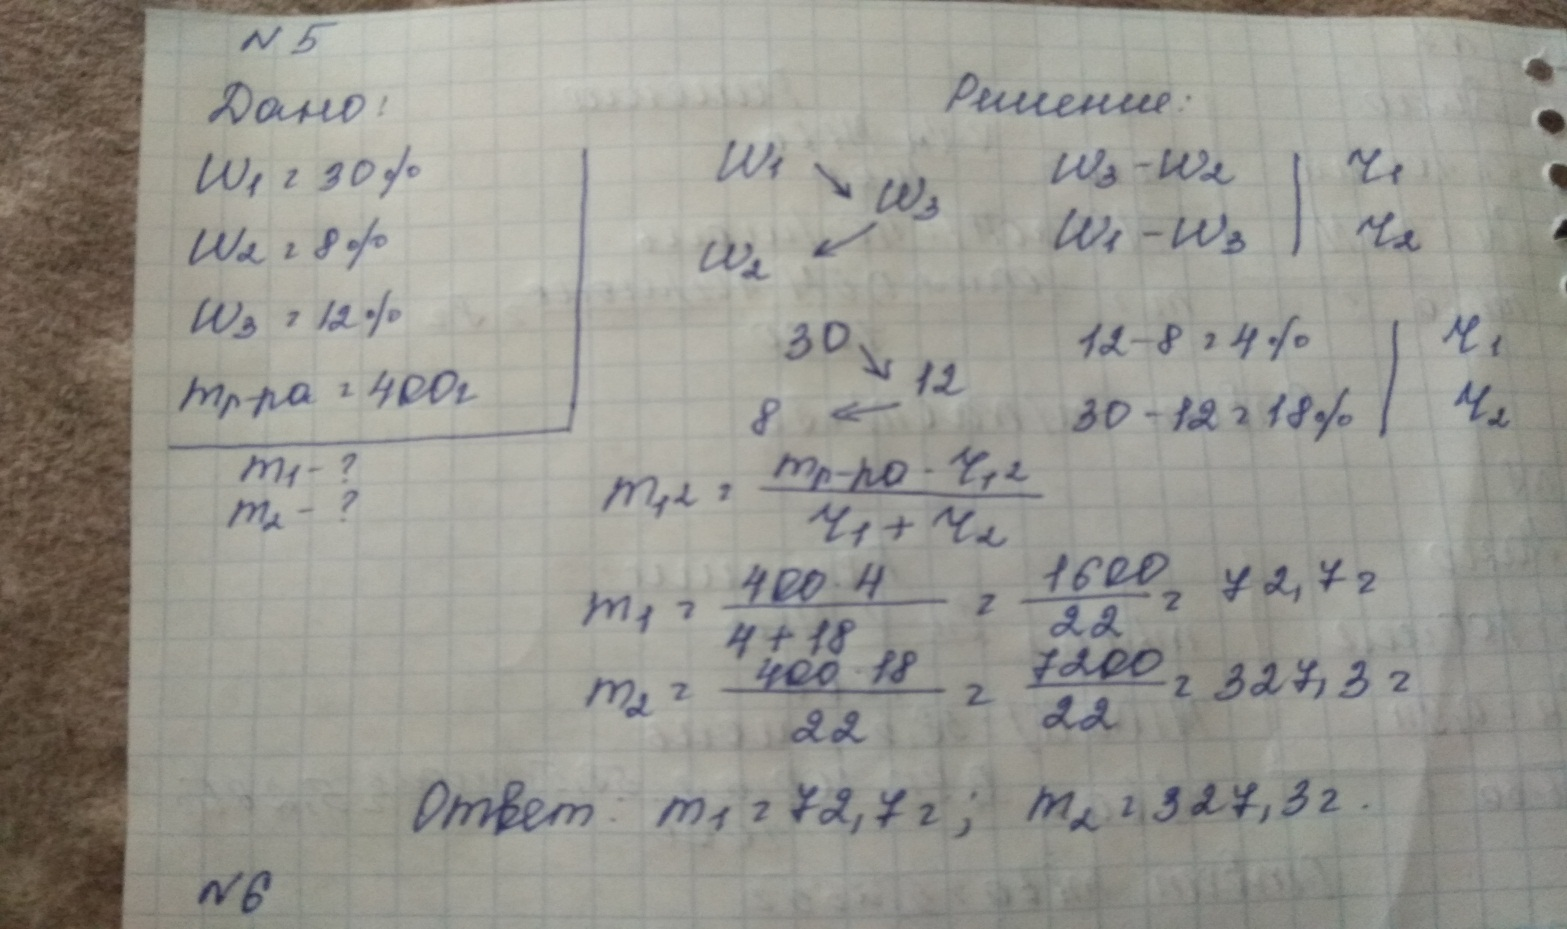 N 5
Дано:
W1 = 30%
W2 = 8%
W3 = 12%
mр-ра = 400г
m1 - ?
m2 - ?
Решение:
W1 W3 W3 - W2 | r1
W2 W1 - W3 | r2
30 12 12 - 8 = 4% | r1
8 30 - 12 = 18% | r2
m1,2 = mр-ра · r1,2 / r1 + r2
m1 = 400 · 4 / 4 + 18 = 1600 / 22 = 72,7г
m2 = 400 · 18 / 22 = 7200 / 22 = 327,3г
Ответ: m1 = 72,7г; m2 = 327,3г.
N6